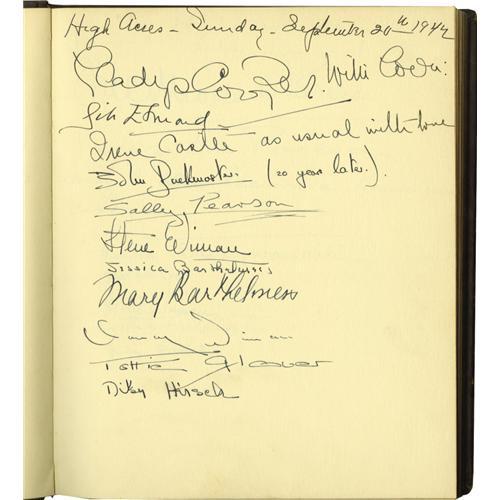 High Acres - Sunday - September 20th 1942
Gladys Cooper. With Love:
Irene Castle as usual with love
John Buckmaster. (20 year later.).
Sally Pearson
Steve Wiman
Jessica Barthelmess
Mary Barthelmess
Wiman
Tottie Glover
Hirsch